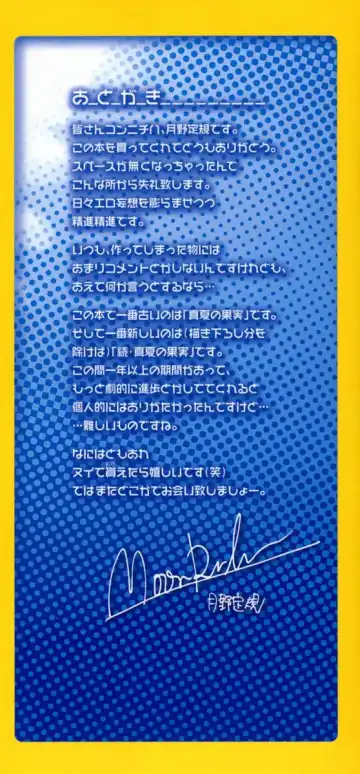 あ_と_が_き_ _ _ _ _ _ _ _ _
皆さんコンニチハ、月野定規です。
この本を買ってくれてどうもありがとう。
スペースが無くなっちゃったんで
こんな所から失礼致します。
日々エロ妄想を膨らませつつ
精進精進です。
いつも、作ってしまった物には
あまりコメントとかしないんですけれども、
あえて何か言うとするなら…
この本で一番古いのは「真夏の果実」です。
そして一番新しいのは(描き下ろし分を
除けば)「続・真夏の果実」です。
この間一年以上の期間があって、
もっと劇的に進歩とかしててくれると
個人的にはありがたかったんですけど…
…難しいものですね。
なにはともあれ
ヌイて貰えたら嬉しいです(笑)
ではまたどこかでお会い致しましょー。
MoonRuler
月野定規